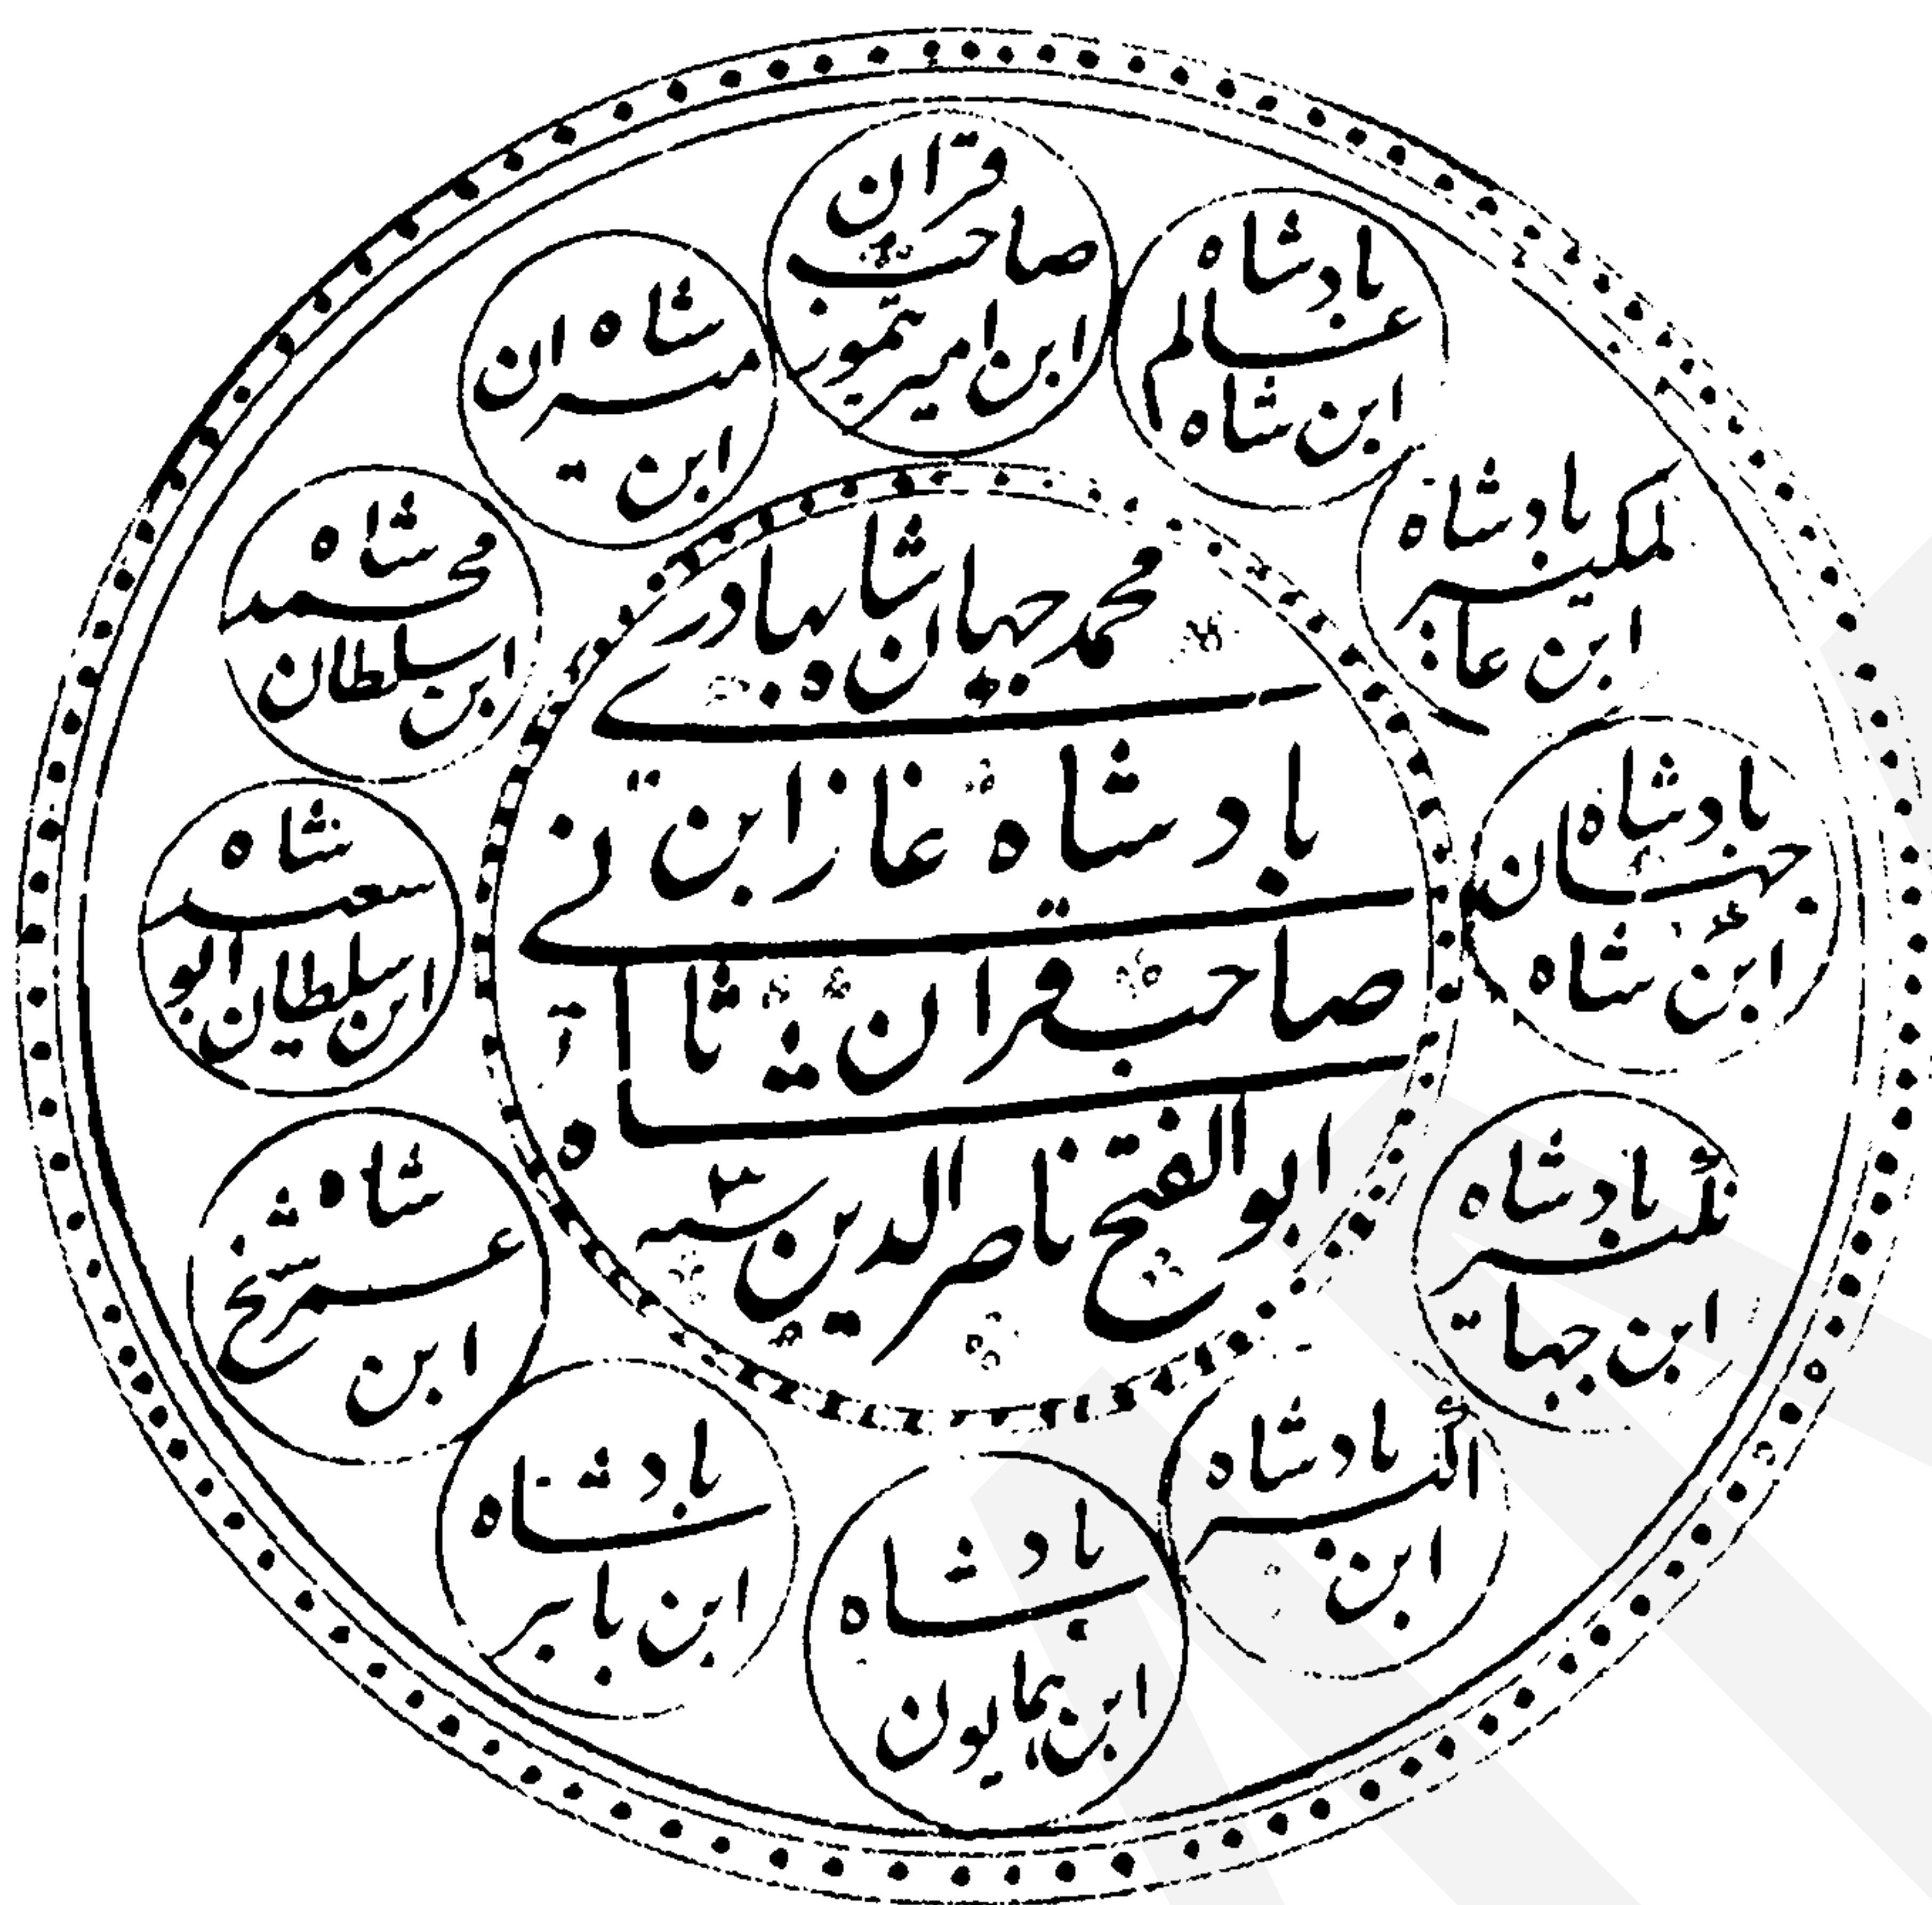 محمد جهان شاه بهادر
بادشاه غازی ابن
صاحبقران ثانی شاه
ابو الفتح ناصر الدین سنه
ابن امیر تیمور
صاحب
قران
ابن
میران
شاه
ابن سلطان
محمد
شاه
ابن سلطان ابو
سعید
شاه
ابن
عمر شیخ
شاه
ابن بابر
بادشاه
ابن همایون
بادشاه
ابن
اکبر
بادشاه
ابن جهان
گیر بادشاه
ابن شاه
جهان
بادشاه
ابن عا
لمگیر
بادشاه
ابن شاه
عالم
بادشاه